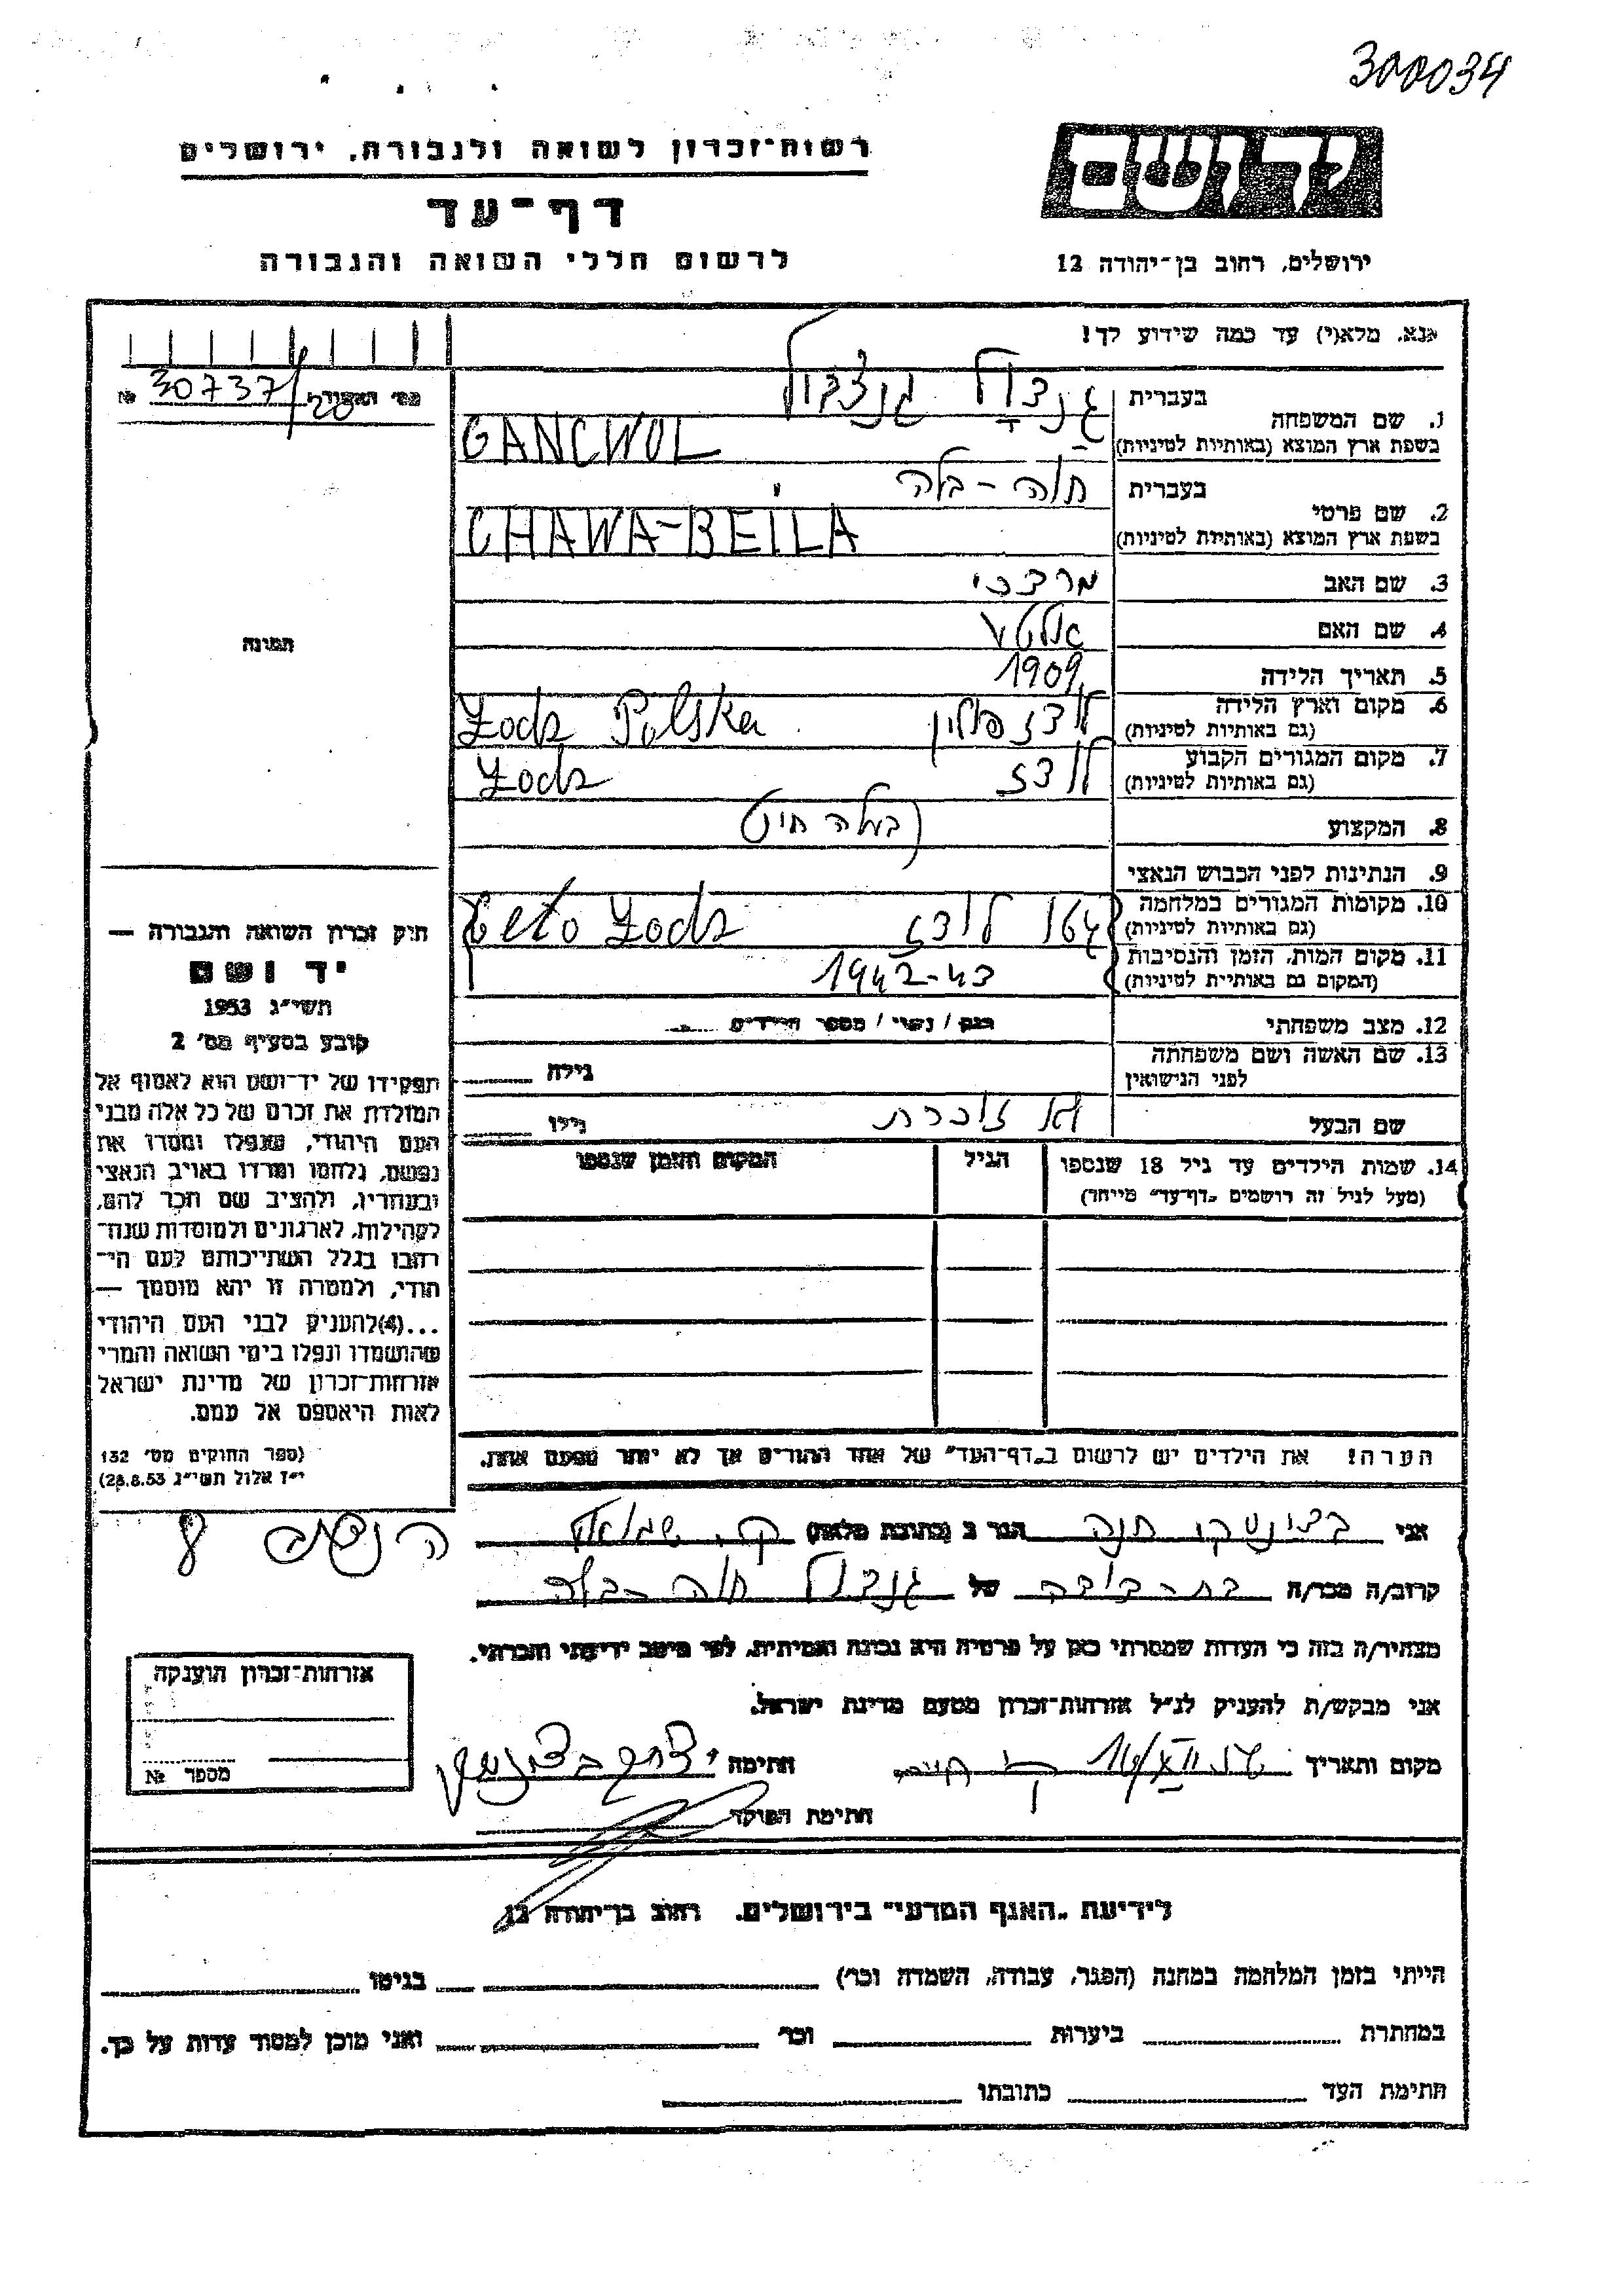 300034
יד ושם
רשות־זכרון לשואה ולגבורה, ירושלים
דף־עד
לרשום חללי השואה והגבורה
ירושלים, רחוב בן־יהודה 12
נא. מלא(י) עד כמה שידוע לך!
№ 30737/20
1. שם המשפחה בעברית גנצוול גנצבול
בשפת ארץ המוצא (באותיות לטיניות) GANCWOL
2. שם פרטי בעברית חוה - בלה
בשפת ארץ המוצא (באותיות לטיניות) CHAWA-BEILA
3. שם האב מרדכי
4. שם האם
5. תאריך הלידה 1909
6. מקום וארץ הלידה (גם באותיות לטיניות) לודז פולין Łodz Polska
7. מקום המגורים הקבוע (גם באותיות לטיניות) לודז Łodz
8. המקצוע (בעלה חיט)
9. הנתינות לפני הכבוש הנאצי
10. מקומות המגורים במלחמה (גם באותיות לטיניות) גטו לודז Geto Łodz
11. מקום המות, הזמן והנסיבות (המקום גם באותיות לטיניות) 1942-43
12. מצב משפחתי רווק / נשוי / מספר הילדים
13. שם האשה ושם משפחתה לפני הנישואין גילה
שם הבעל לא זוכרת גילו
14. שמות הילדים עד גיל 18 שנספו הגיל המקום והזמן שנספו
(מעל לגיל זה רושמים „דף־עד” מייחד)
תמונה
חוק זכרון השואה והגבורה —
יד ושם
תשי״ג 1953
קובע בסעיף מס׳ 2
תפקידו של יד־ושם הוא לאסוף אל
המולדת את זכרם של כל אלה מבני
העם היהודי, שנפלו ומסרו את
נפשם, נלחמו ומרדו באויב הנאצי
ובעוזריו, ולהציב שם וזכר להם,
לקהילות, לארגונים ולמוסדות שנח־
רבו בגלל השתייכותם לעם הי־
הודי, ולמטרה זו יהא מוסמך —
...(4)להעניק לבני העם היהודי
שהושמדו ונפלו בימי השואה והמרי
אזרחות־זכרון של מדינת ישראל
לאות היאספם אל עמם.
(ספר החוקים מס׳ 132
י״ז אלול תשי״ג 28.8.53)
הערה! את הילדים יש לרשום ב„דף־העד” של אחד ההורים אך לא יותר מפעם אחת.
אני חנה הגר ב (כתובת מלאה) ק. שמואל 8
קרוב/ה מכר/ה בת-דודה של גנצבול חוה - בלה
מצהיר/ה בזה כי העדות שמסרתי כאן על פרטיה היא נכונה ואמיתית, לפי מיטב ידיעתי והכרתי.
אני מבקש/ת להעניק לנ״ל אזרחות־זכרון מטעם מדינת ישראל.
מקום ותאריך 16/XII חתימה
חתימת הפוקד
אזרחות־זכרון הוענקה
מספר №
לידיעת „האגף המדעי” בירושלים. רחוב בן־יהודה 12
הייתי בזמן המלחמה במחנה (הסגר, עבודה, השמדה וכו׳) בגיטו
במחתרת ביערות וכו׳ ואני מוכן למסור עדות על כך.
חתימת העד כתובתו